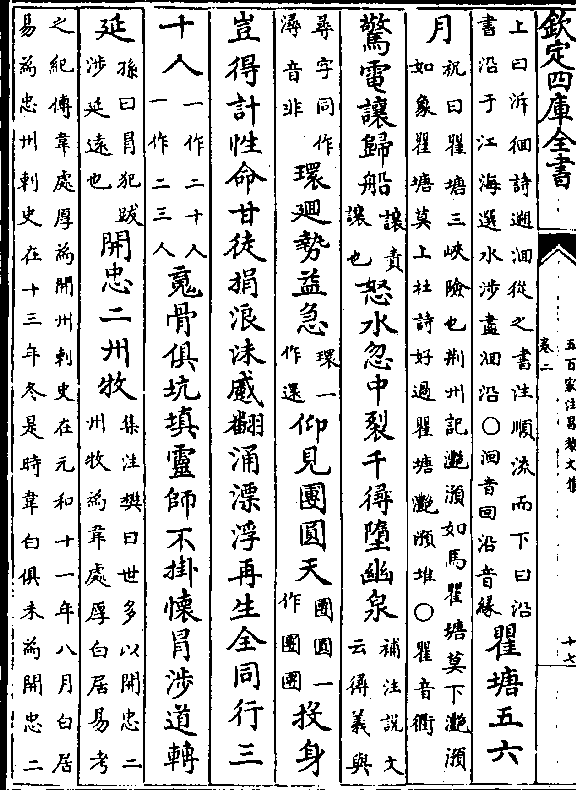 欽定四庫全書
五百家注昌黎文集
卷二
十七
上曰泝徊詩遡洄從之書注順流而下曰沿
書沿于江海選水涉盡洄沿○洄音回沿音縁
瞿塘五六
月
祝曰瞿塘三峽險也荆州記灔澦如馬瞿塘莫下灔澦
如象瞿塘莫上杜詩好過瞿塘灔澦堆○瞿音衢
驚電讓歸船
讓責
讓也
怒水忽中裂千㝷墮幽泉
補注説文
云㝷義與
尋字同作
潯音非
環廻勢益急
環一
作還
仰見團圓天
團圓一
作團團
投身
豈得計性命甘徒捐浪沫蹙翻涌漂浮再生全同行三
十人
一作二十人
一作二三人
䰟骨俱坑填靈師不掛懷冒涉道轉
延
孫曰冒犯跋
涉延遠也
開忠二州牧
集注樊曰世多以開忠二
州牧為韋處厚白居易考
之紀傳韋處厚為開州刺史在元和十一年八月白居
易為忠州刺史在十三年冬是時韋白俱未為開忠二